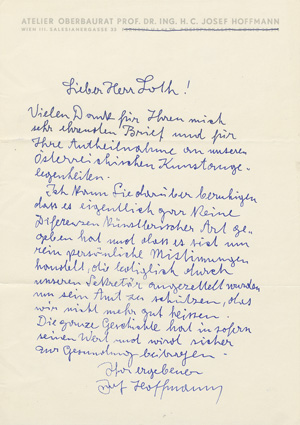 ATELIER OBERBAURAT PROF. DR. ING. H. C. JOSEF HOFFMANN
WIEN III, SALESIANERGASSE 33
Lieber Herr Loth!
Vielen Dank für Ihren mich
sehr ehrenden Brief und für
Ihre Antheilnahme an unseren
Österreichischen Kunstange-
legenheiten.
Ich kann Sie darüber beruhigen
dass es eigentlich gar keine
Diferenzen künstlerischer Art ge-
geben hat und dass es sich um
rein persönliche Mistimmungen
handelt, die lediglich durch
unseren Sekretär angezettelt wurden
um sein Amt zu schützen, das
wir nicht mehr gut heissen.
Die ganze Geschichte hat in sofern
seinen Wert und wird sicher
zur Gesundung beitragen.
Ihr ergebener
Josef Hoffmann